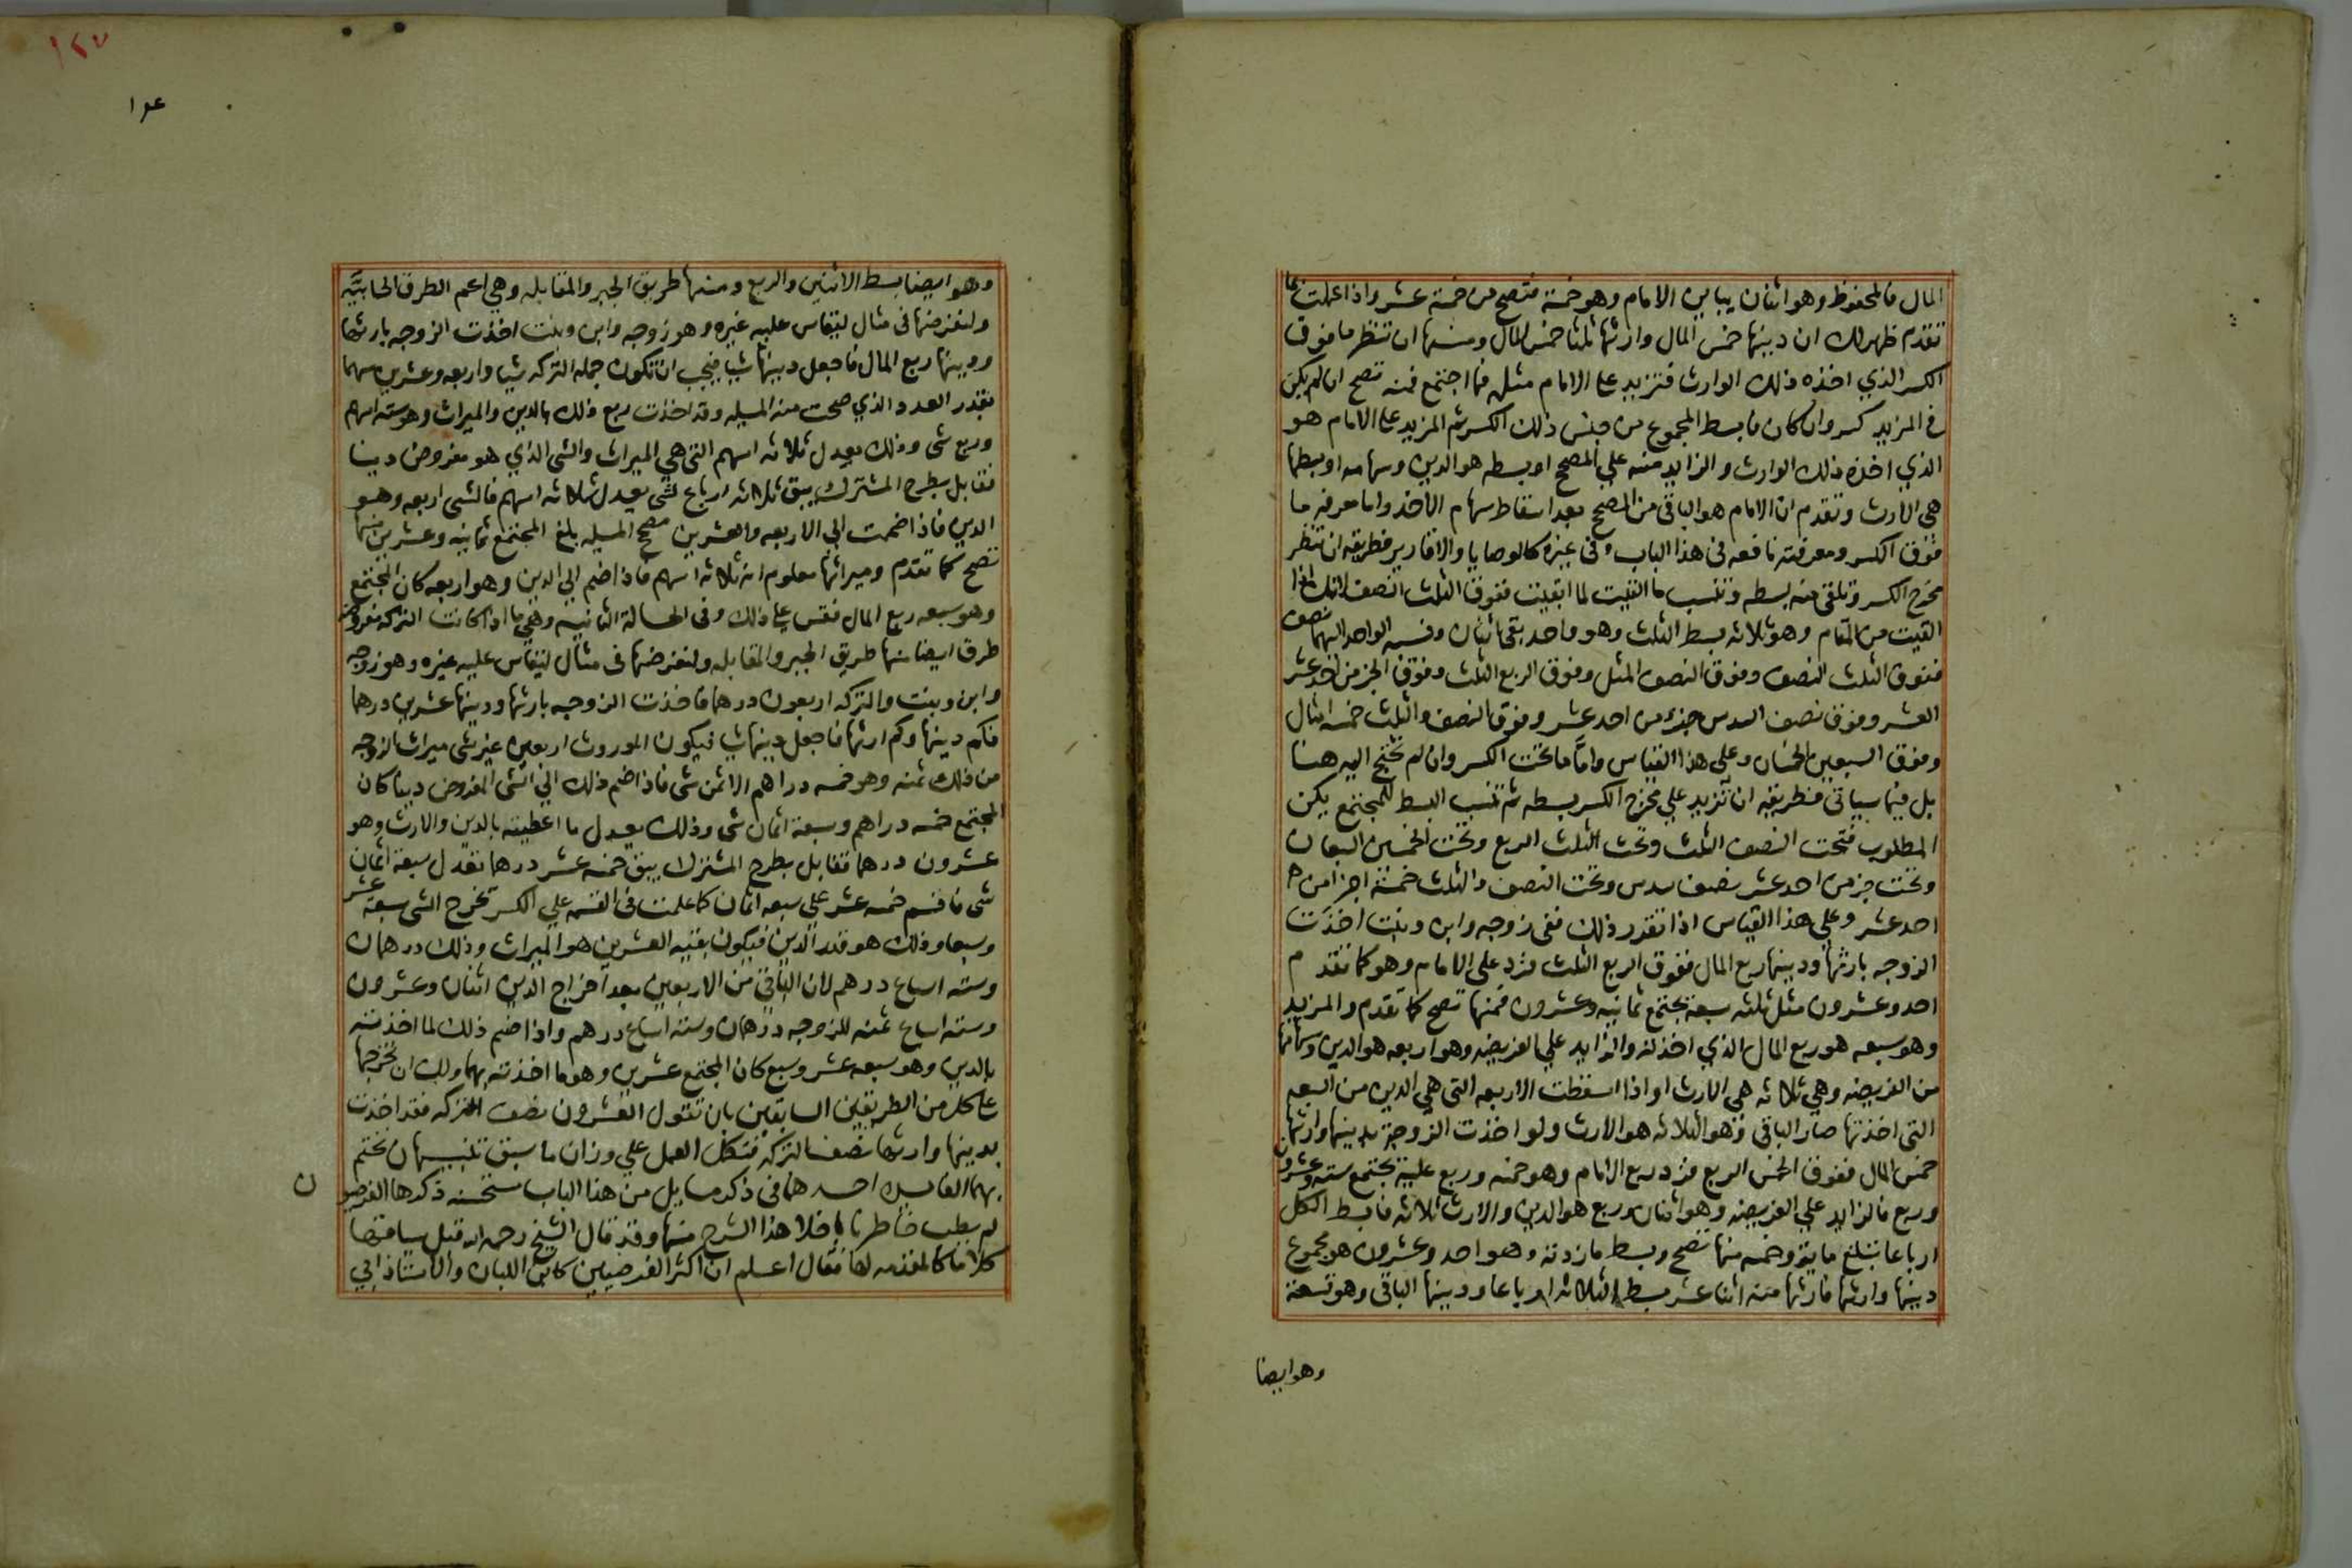 المال فالمحفوظ وهو اثنان يباين الامام وهو خمسة فتصح من خمسة عشر واذا عملت بما
تقدم ظهر لك ان دينها خمس المال وارثها ثلثا خمس المال ومنها ان تنظر ما فوق
الكسر الذي اخذه ذلك الوارث فتزيد على الامام مثله فما اجتمع فمنه تصح ان لم يكن
في المزيد كسر وان كان فابسط المجموع من جنس ذلك الكسر ثم المزيد على الامام هو
الذي اخذه ذلك الوارث والزايد منه علي المصحح او بسطه هو الدين وسهامه او بسطها
هي الارث وتقدم ان الامام هو الباقي من المصحح بعد اسقاط سهام الآخذ واما معرفة ما
فوق الكسر ومعرفته نافعه في هذا الباب وفي غيره كالوصايا والاقارير فطريقه ان تنظر
مخرج الكسر وتلقي منه بسطه وتنسب ما القيت لما ابقيت ففوق الثلث النصف لانك اذا
القيت من المقام وهو ثلاثه بسط الثلث وهو واحد بقي اثنان ونسبة الواحد اليهما نصف
ففوق الثلث النصف وفوق النصف المثل وفوق الربع الثلث وفوق الجزء من احد عشر
العشر وفوق نصف السدس جزء من احد عشر وفوق النصف والثلث خمسة امثال
وفوق السبعين الخمسان وعلى هذا القياس واما ما تحت الكسر وان لم نحتج اليه هنا
بل فيما سياتي فطريقه ان تزيد علي مخرج الكسر بسطه ثم تنسب البسط للمجتمع يكن
المطلوب فتحت النصف الثلث وتحت الثلث الربع وتحت الخمسين السبعان
وتحت جزء من احد عشر نصف سدس وتحت النصف والثلث خمسة اجزا من
احد عشر وعلي هذا القياس اذا تقرر ذلك ففي زوجه وابن وبنت اخذت
الزوجه بارثها ودينها ربع المال ففوق الربع الثلث فزد علي الامام وهو كما تقدم
احد وعشرون مثل ثلثه سبعة يجتمع ثمانيه وعشرون فمنها تصح كما تقدم والمزيد
وهو سبعه هو ربع المال الذي اخذ له والزايد علي الفريضه وهو اربعه هو الدين وسهامها
من الفريضه وهي ثلاثه هي الارث او اذا اسقطت الاربعه التي هي الدين من السبعه
التي اخذتها صار الباقي وهو الثلاثه هو الارث ولو اخذت الزوجة بدينها وارثها
خمس المال ففوق الخمس الربع فزد ربع الامام وهو خمسه وربع عليه يجتمع سته وعشرون
وربع فالزايد علي الفريضه وهو اثنان وربع هو الدين والارث ثلاثه فابسط الكل
ارباعا تبلغ مايه وخمسه منها تصح وبسط ما زدته وهو احد وعشرون هو مجموع
دينها وارثها فارثها منه اثنا عشر بسط الثلاثه ارباعا ودينها الباقي وهو تسعة
وهو ايضا
١٢٧
وهو ايضا بسط الاثنين والربع ومنها طريق الجبر والمقابله وهي اعم الطرق الحسابيه
ولنفرضها في مثال ليقاس عليه غيره وهو زوجه وابن وبنت اخذت الزوجه بارثها
ودينها ربع المال فاجعل دينها شيا فيجب ان تكون جملة التركه شيا واربعه وعشرين سهما
بقدر العدد الذي صحت منه المسيله وقد اخذت ربع ذلك بالدين والميراث وهو سته اسهم
وربع شي وذلك يعدل ثلاثه اسهم التي هي الميراث والشي الذي هو مفروض دينا
فقابل بطرح المشترك يبق ثلاثه ارباع شي يعدل ثلاثه اسهم فالشي اربعه وهو
الدين فاذا ضممت الي الاربعه والعشرين مصحح المسيله بلغ المجتمع ثمانيه وعشرين منها
تصح كما تقدم وميراثها معلوم انه ثلاثه اسهم فاذا ضم الي الدين وهو اربعه كان المجتمع
وهو سبعه ربع المال فقس علي ذلك وفي الحالة الثانيه وهي ما اذا كانت التركه مفروضه
طرق ايضا منها طريق الجبر والمقابله ولنفرضها في مثال ليقاس عليه غيره وهو زوجه
وابن وبنت والتركه اربعون درهما فاخذت الزوجه بارثها ودينها عشرين درهما
فكم دينها وكم ارثها فاجعل دينها شيا فيكون الموروث اربعين غير شي ميراث الزوجه
من ذلك ثمنه وهو خمسه دراهم الا ثمن شي فاذا ضم ذلك الي الشي المفروض دينا كان
المجتمع خمسه دراهم وسبعة اثمان شي وذلك يعدل ما اعطيته بالدين والارث وهو
عشرون درهما تقابل بطرح المشترك يبق خمسه عشر درهما تعدل سبعة اثمان
شي فاقسم خمسه عشر علي سبعه اثمان كما علمت في القسمه علي الكسر تخرج الشي سبعة عشر
وسبعا وذلك هو قدر الدين فيكون بقيه العشرين هو الميراث وذلك درهمان
وسته اسباع درهم لان الباقي من الاربعين بعد اخراج الدين اثنان وعشرون
وسته اسباع ثمنه للزوجه درهمان وستة اسباع درهم واذا ضم ذلك لما اخذته
بالدين وهو سبعه عشر وسبع كان المجتمع عشرين وهو ما اخذته بهما ولك ان تخرجها
على كل من الطريقين السابقين بان تقول العشرون نصف التركه فقد اخذت
بدينها وارثها نصف التركه فتكمل العمل علي وزان ما سبق تنبيهان نختم
بهما الفايده احدهما في ذكر مسايل من هذا الباب مستحسنه ذكرها الفرضيون
لم يطب خاطرنا باخلا هذا الشرح منها وقد قال الشيخ رحمه الله قبل سياقتها
كلاما كالمقدمه لها فقال اعلم ان اكثر الفرضيين كابن اللبان والاستاذ ابي